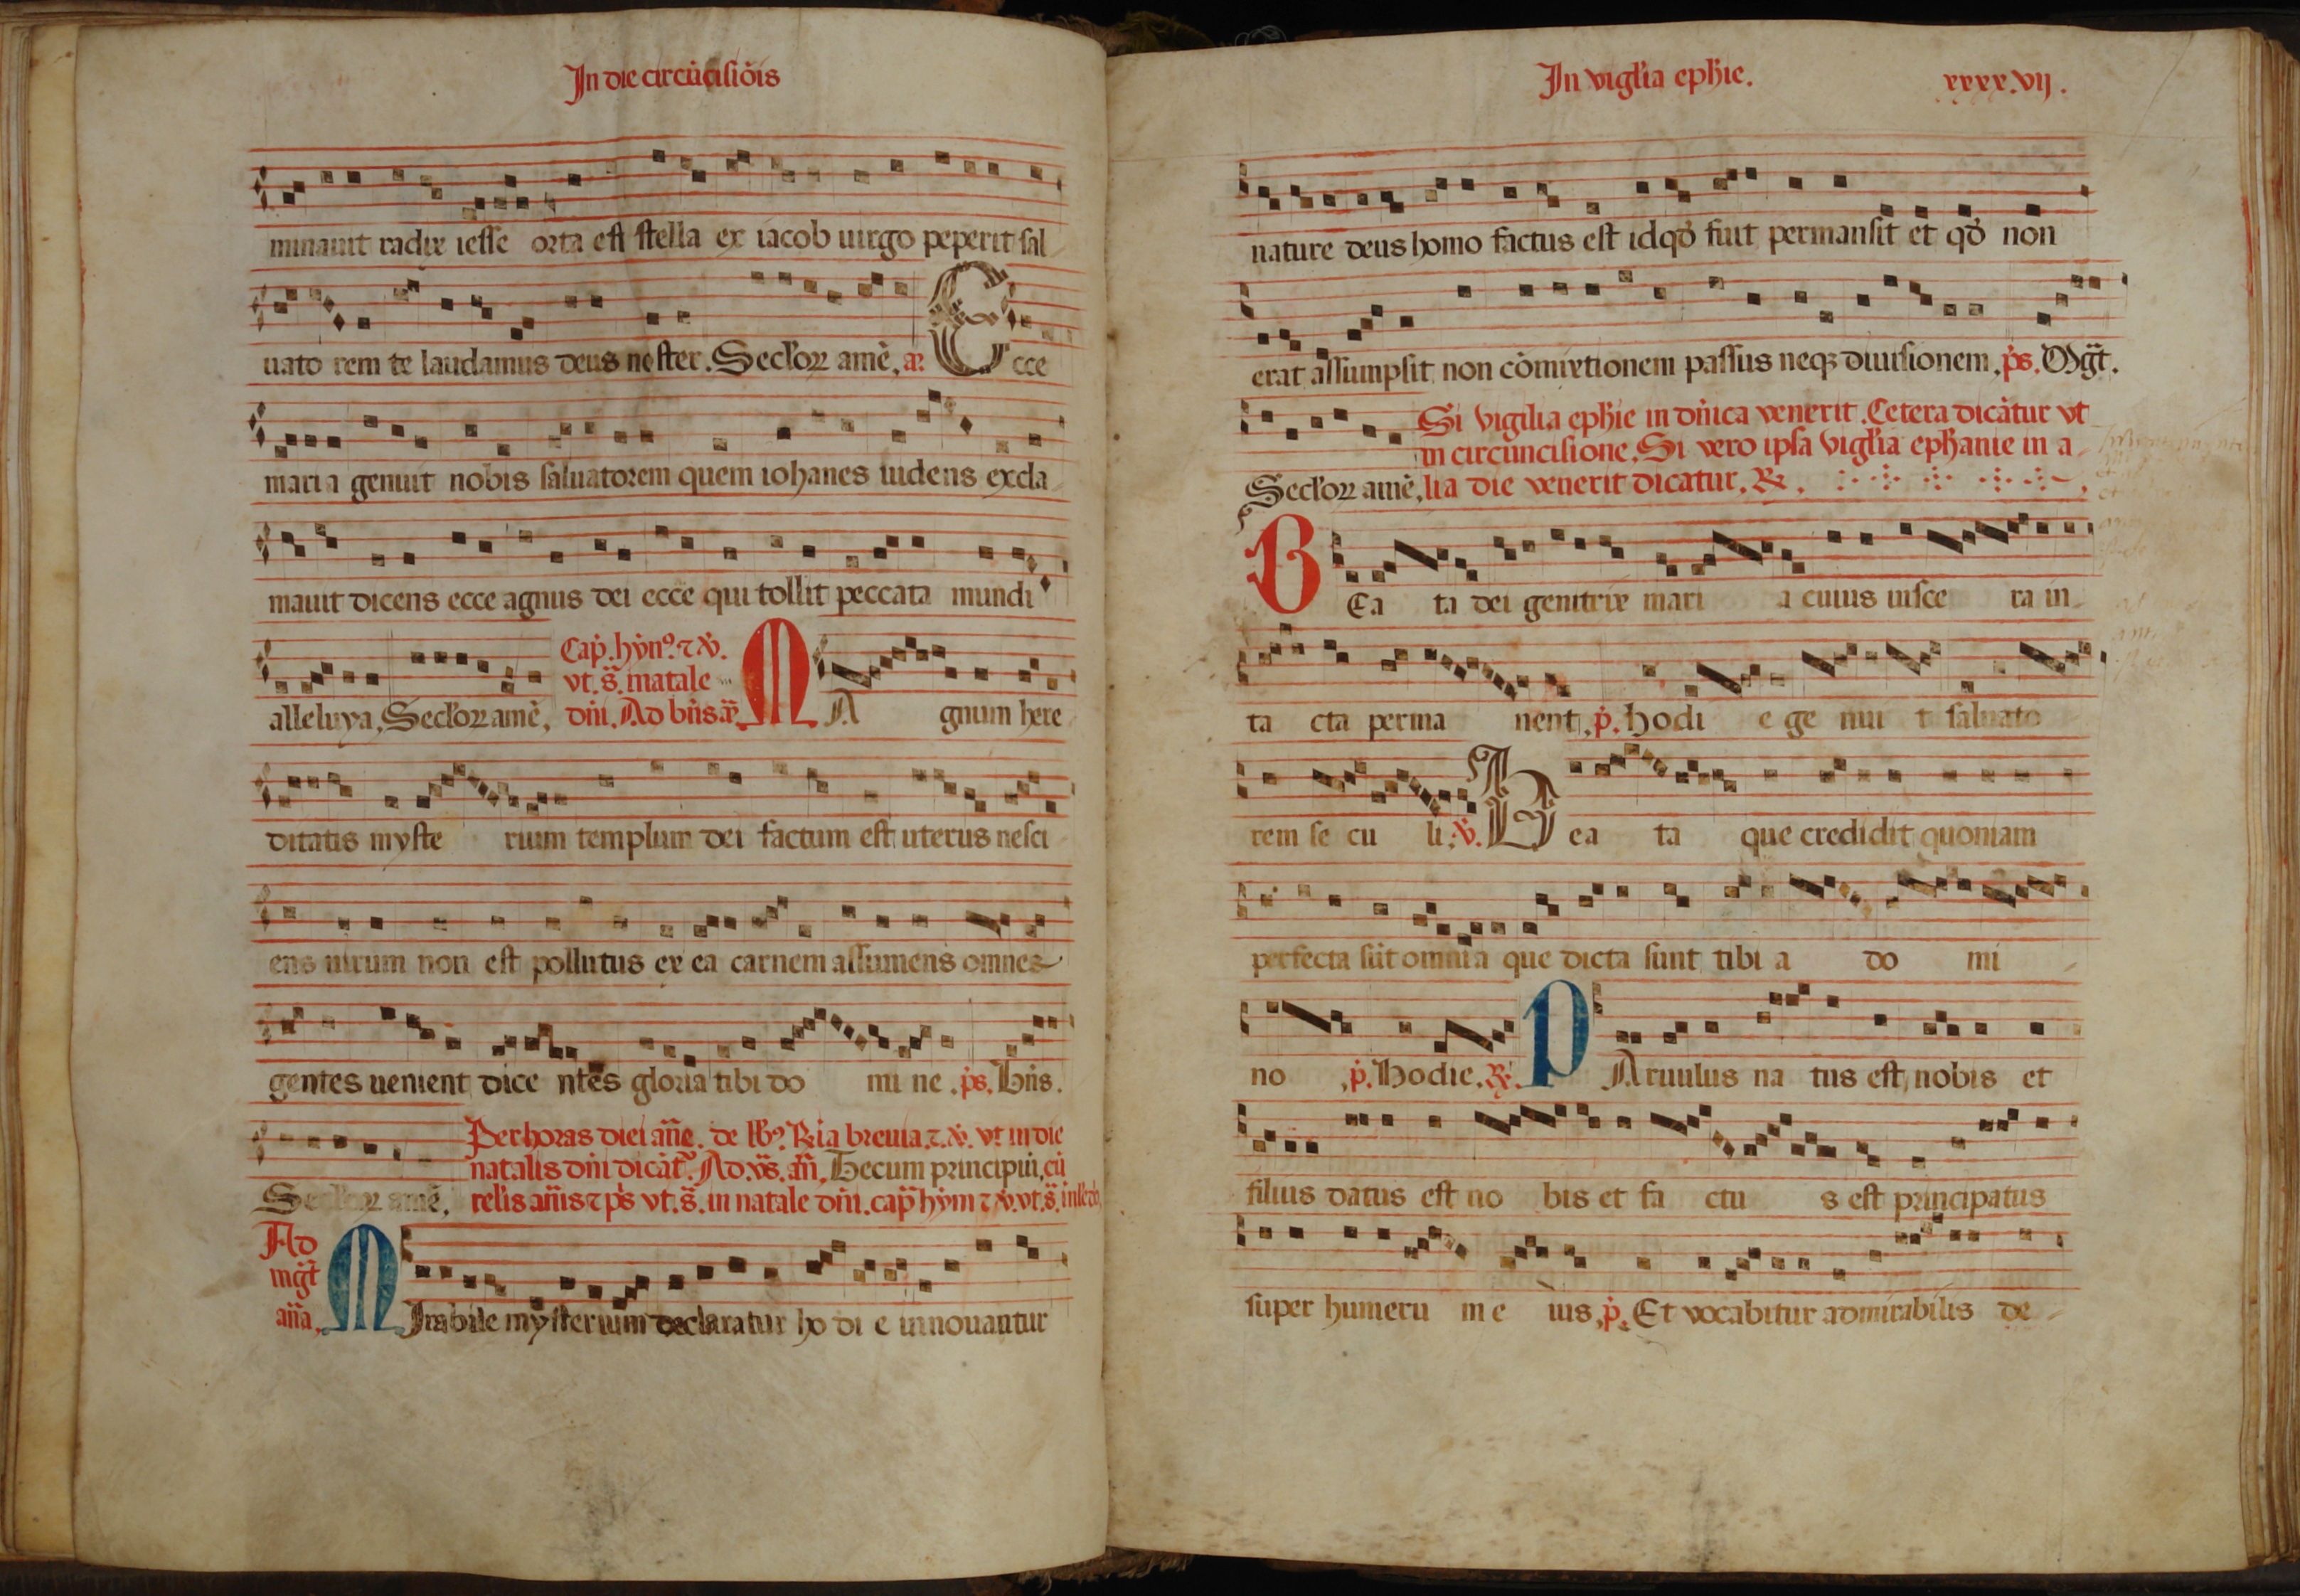 In die circūcisiōis
minauit radix iesse orta est stella ex iacob uirgo peperit sal
uato rem te laudamus deus noster. Sec̄lorꝝ amē, aꝛ Ecce
maria genuit nobis saluatorem quem iohanes uidens excla-
mauit dicens ecce agnus dei ecce qui tollit peccata mundi
Cap̄. hyn̄ꝰ. ⁊ v̄.
vt. s̄. in natale
alleluya, Sec̄lorꝝ amē, dn̄i. Ad bn̄s aꝛ̄. M A gnum here
ditatis myste rium templum dei factum est uterus nesci
ens uirum non est pollutus ex ea carnem assumens omnes
gentes uenient dice ntes gloria tibi do mi ne. p̄s. Bn̄s.
Per horas diei an̄e. de lḡꝰ. R̄ia breuia. ⁊. v̄. vt in die
natalis dn̄i dicāt̄. Ad v̄s. an̄, Tecum principiū, cū
Sec̄lorꝝ amē, relīs an̄is ⁊ p̄s vt. s̄. in natale dn̄i. cap̄ hym̄ ⁊ v̄. vt. s̄.
Ad
mḡt
an̄a,
M Irabile mysterium declaratur ho di e innouantur
In vigl̄ia eph̄ie. xxxx.vij.
nature deus homo factus est id qd̄ fuit permansit et qd̄ non
erat assumpsit non cōmixtionem passus neqꝫ diuisionem. p̄s. Mḡt.
Si vigilia eph̄ie in dn̄ica venerit. Cetera dicātur vt
in circuncisione. Si vero ipsa vigl̄ia eph̄anie in a-
Sec̄lorꝝ amē, lia die venerit dicatur. R̄.
B Ea ta dei genitrix mari a cuius uisce ra in-
ta cta perma nent. p̄. Hodi e ge nui t saluato
rem se cu li. v̄. Bea ta que credidit quoniam
perfecta sūt omnia que dicta sunt tibi a do mi -
no p̄. Hodie. R̄. P Aruulus na tus est nobis et
filius datus est no bis et fa ctu s est principatus
super humeru m e ius, p̄. Et vocabitur admirabilis de-